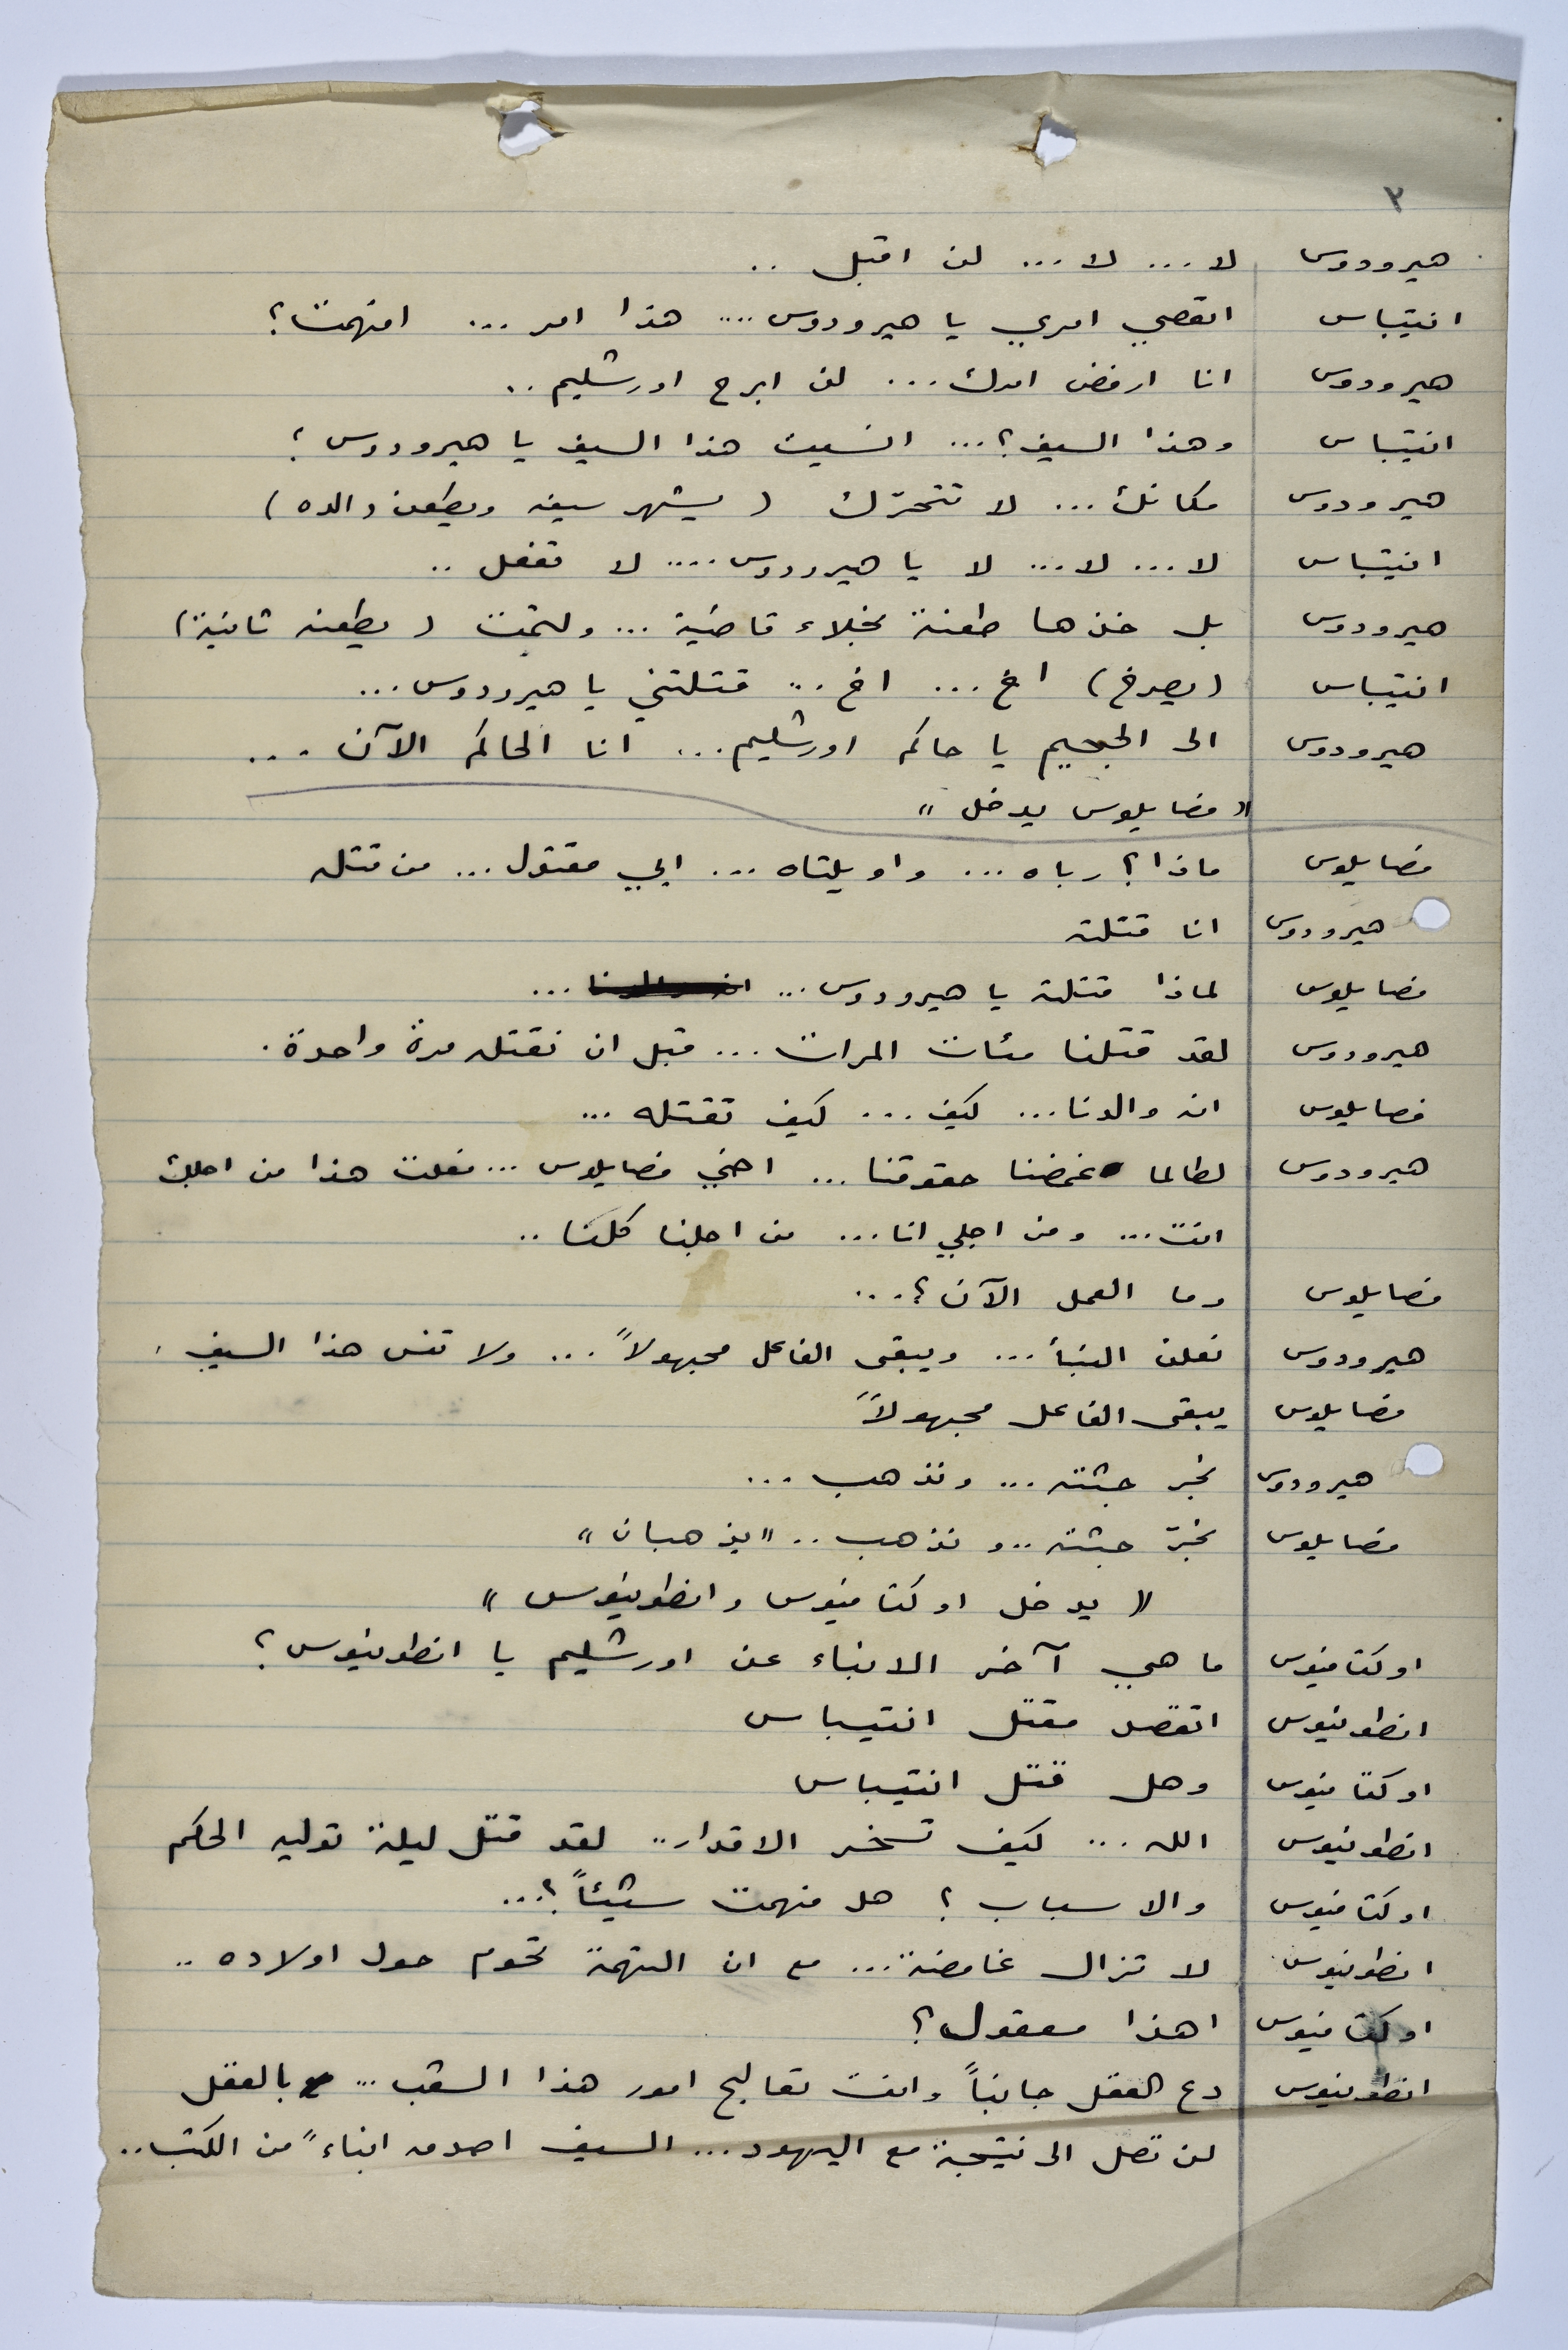 ٢
هيرودوس لا ... لا ... لن اقبل ..
انتيباس اتعصي امري يا هيرودوس .... هذا امر ... افهمت؟
هيرودوس انا ارفض امرك ... لن ابرح اورشليم ..
انتيباس وهذا السيف؟ ... انسيت هذا السيف يا هيرودوس؟
هيرودوس مكانك ... لا تتحرّك (يشهر سيفه ويطعن والده)
انتيباس لا ... لا ... لا يا هيرودوس .... لا تفعل ..
هيرودوس بل خذها طعنة نجلاء قاضية ... ولتمت (يطعنه ثانية)
انتيباس (يصرخ) اخ ... اخ .. قتلتني يا هيرودوس ...
هيرودوس الى الجحيم يا حاكم اورشليم ... انا الحاكم الآن ...
"فصايلوس يدخل"
فصايلوس ماذا؟ رباه ... واويلتاه ... ابي مقتول ... من قتله
هيرودوس انا قتلته
فصايلوس لماذا قتلته يا هيرودوس ... ...
هيرودوس لقد قتلنا مئات المرات ... قبل ان نقتله مرة واحدة.
فصايلوس انه والدنا ... كيف ... كيف تقتله ...
هيرودوس لطالما غمضنا حقوقنا ... اخي فصايلوس ... فعلت هذا من اجلك
انت ... ومن اجلي انا ... من اجلنا كلنا ..
فصايلوس وما العمل الآن؟ ...
هيرودوس نعلن النبأ ... ويبقى الفاعل مجهولاً ... ولا تنس هذا السيف.
فصايلوس يبقى الفاعل مجهولاً
هيرودوس نجر جثته ... ونذهب ...
فصايلوس نجرّ جثته .. ونذهب .. "يذهبان"
"يدخل اوكتافيوس وانطونيوس"
اوكتافيوس ما هي آخر الانباء عن اورشليم يا انطونيوس؟
انطونيوس اتقصد مقتل انتيباس
اوكتافيوس وهل قتل انتيباس
انطونيوس الله ... كيف تسخر الاقدار .. لقد قتل ليلة توليه الحكم
اوكتافيوس والاسباب؟ هل فهمت شيئاً؟ ...
انطونيوس لا تزال غامضة ... مع ان التهمة تحوم حول اولاده ..
اوكتافيوس اهذا معقول؟
انطونيوس دع العقل جانباً وانت تعالج امور هذا الشعب ... بالعقل
لن تصل الى نتيجة مع اليهود ... السيف اصدق انباءً من الكتب ..